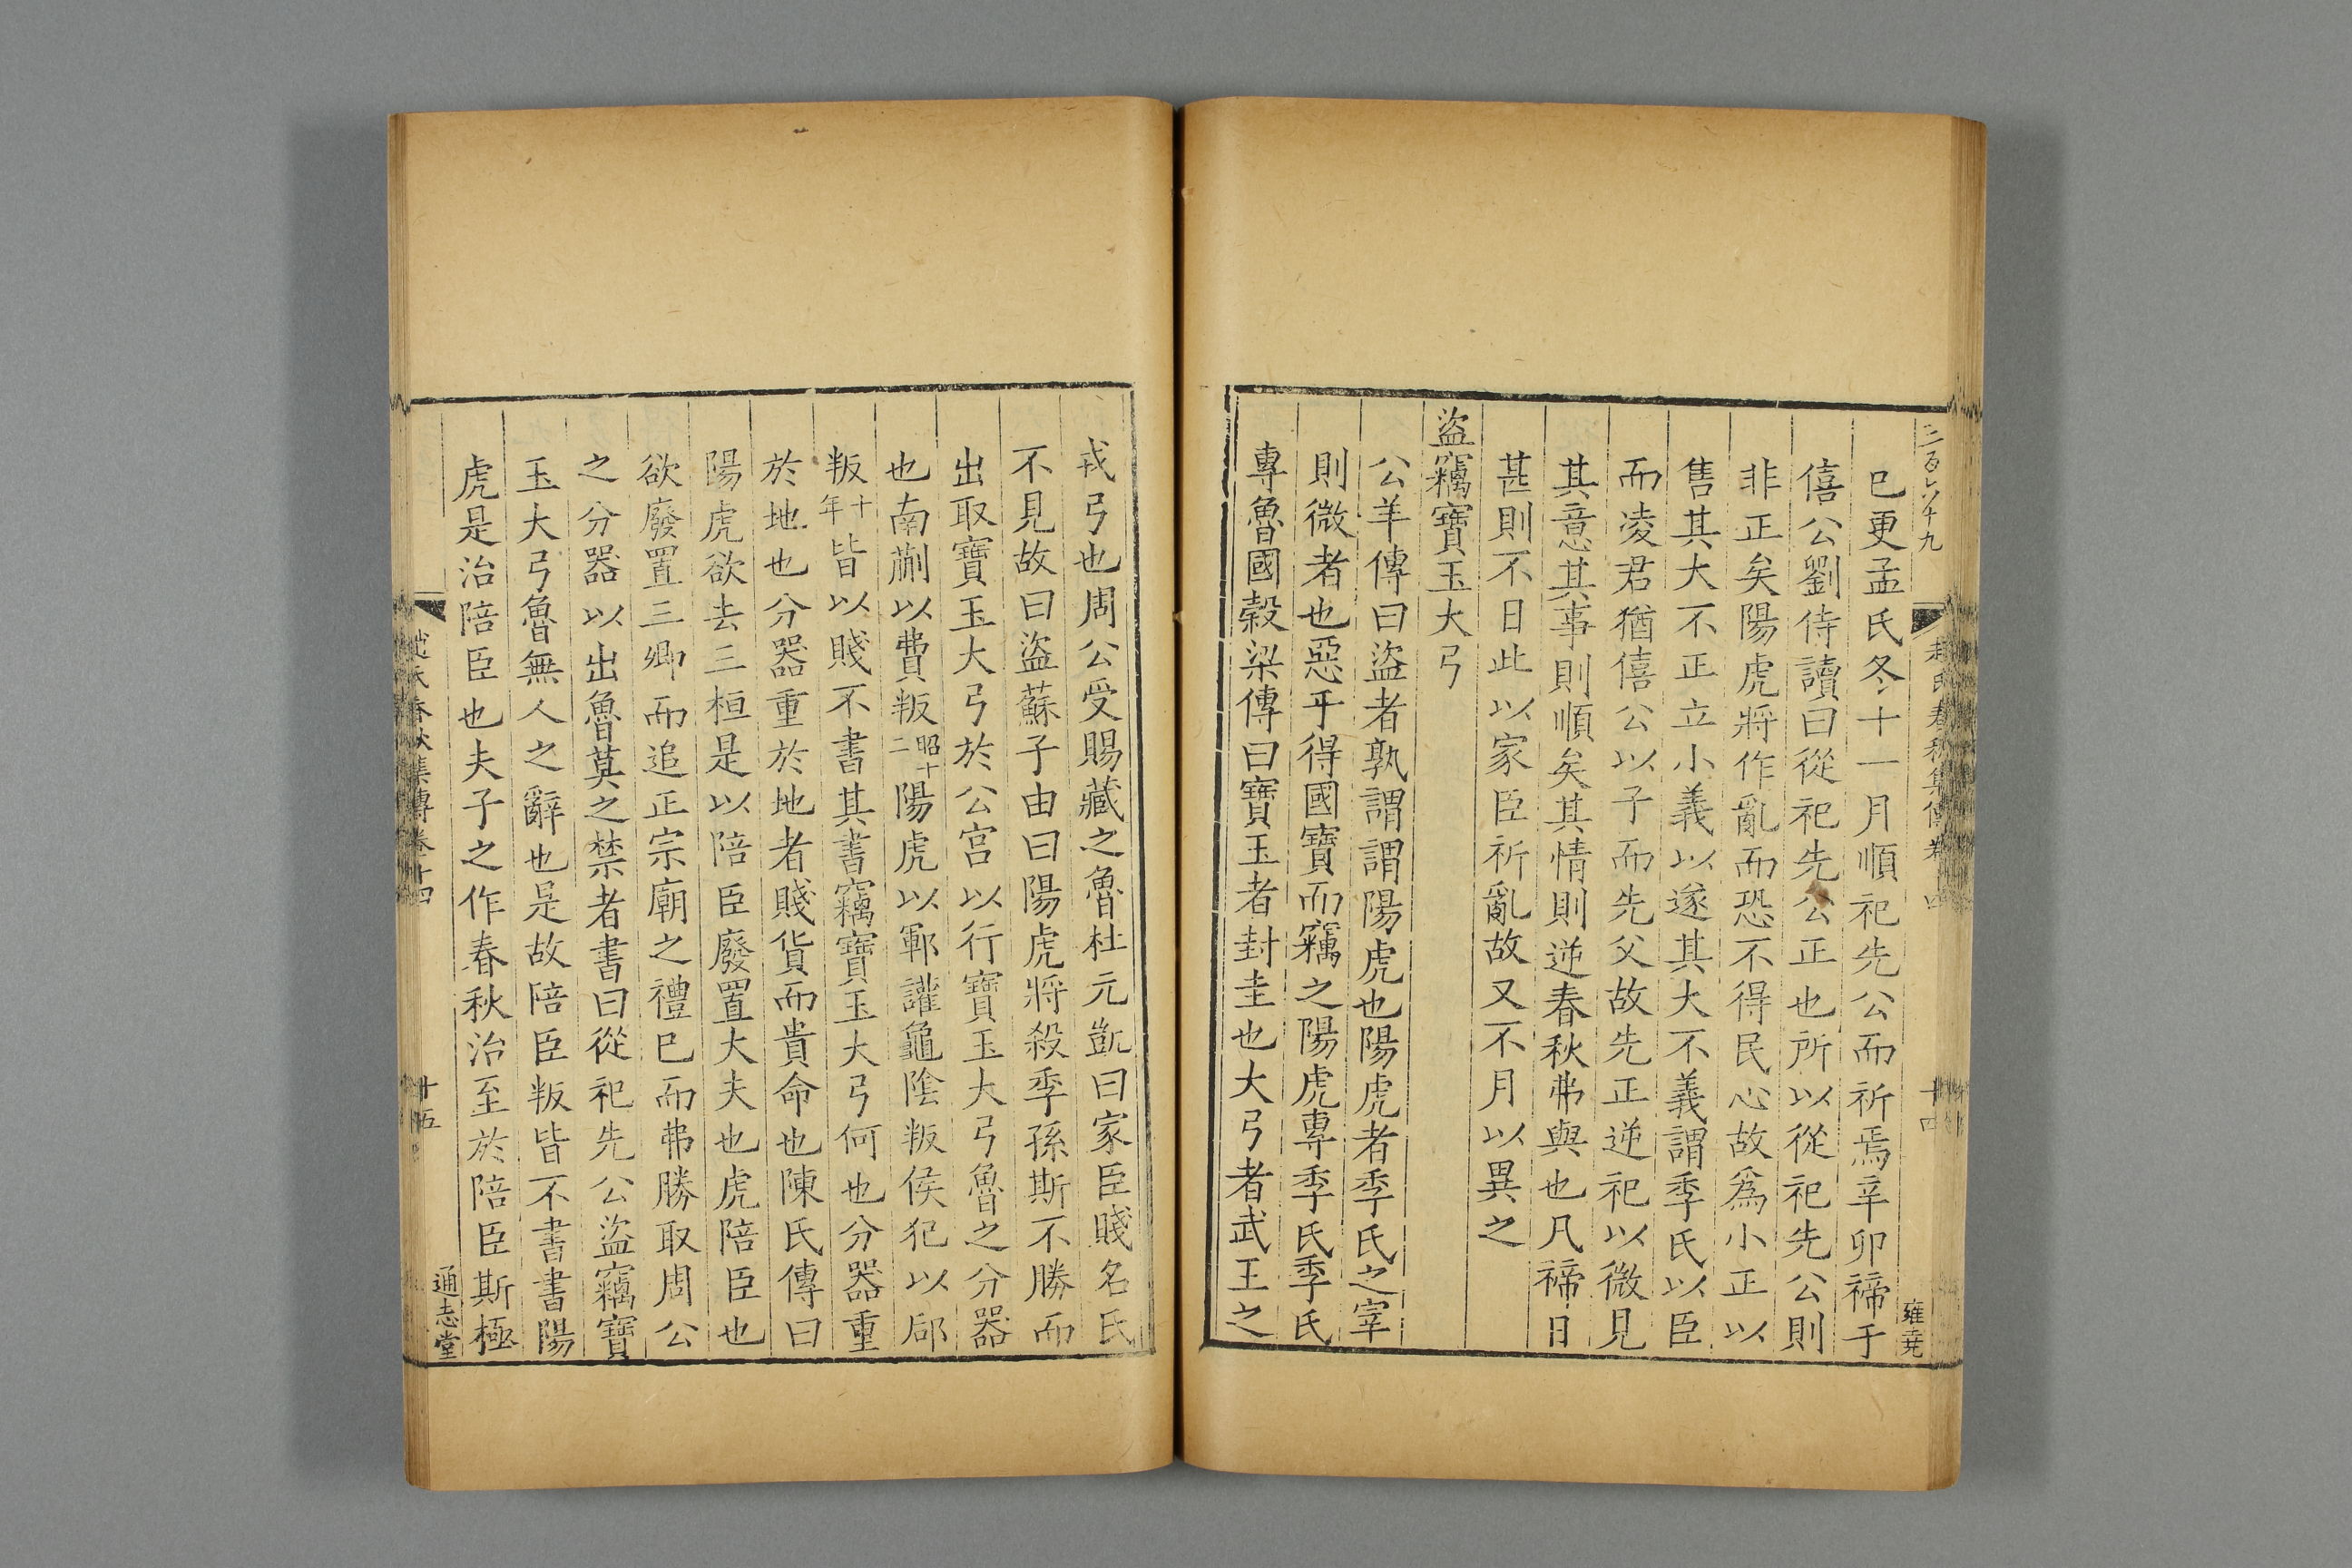 三百六十九
趙氏春秋集傳卷十四
十四
雍堯
已更孟氏冬十一月順祀先公而祈焉辛卯禘于
僖公劉侍讀曰從祀先公正也所以從祀先公則
非正矣陽虎將作亂而恐不得民心故爲小正以
售其大不正立小義以遂其大不義謂季氏以臣
而凌君猶僖公以子而先父故先正逆祀以微見
其意其事則順矣其情則逆春秋弗與也凡禘日
甚則不日此以家臣祈亂故又不月以異之
盜竊寶玉大弓
公羊傳曰盜者孰謂謂陽虎也陽虎者季氏之宰
則微者也惡乎得國寶而竊之陽虎專季氏季氏
專魯國穀梁傳曰寶玉者封圭也大弓者武王之
戎弓也周公受賜藏之魯杜元凱曰家臣賤名氏
不見故曰盜蘇子由曰陽虎將殺季孫斯不勝而
出取寶玉大弓於公宮以行寶玉大弓魯之分器
也南蒯以費叛昭十二陽虎以鄆讙龜陰叛侯犯以郈
叛十年皆以賤不書其書竊寶玉大弓何也分器重
於地也分器重於地者賤貨而貴命也陳氏傳曰
陽虎欲去三桓是以陪臣廢置大夫也虎陪臣也
欲廢置三卿而追正宗廟之禮已而弗勝取周公
之分器以出魯莫之禁者書曰從祀先公盜竊寶
玉大弓魯無人之辭也是故陪臣叛皆不書書陽
虎是治陪臣也夫子之作春秋治至於陪臣斯極
趙氏春秋集傳卷十四
十五
通志堂